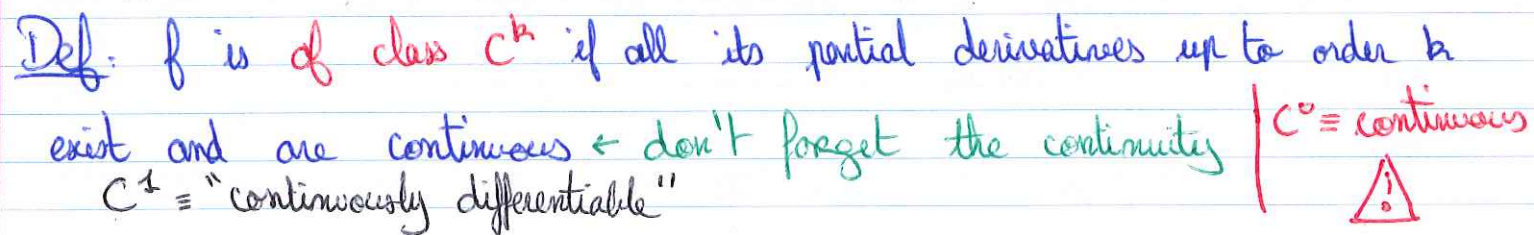 Def: f is of class C^k if all its partial derivatives up to order k
exist and are continuous ← don't forget the continuity | C⁰ ≡ continuous
C¹ ≡ "continuously differentiable"